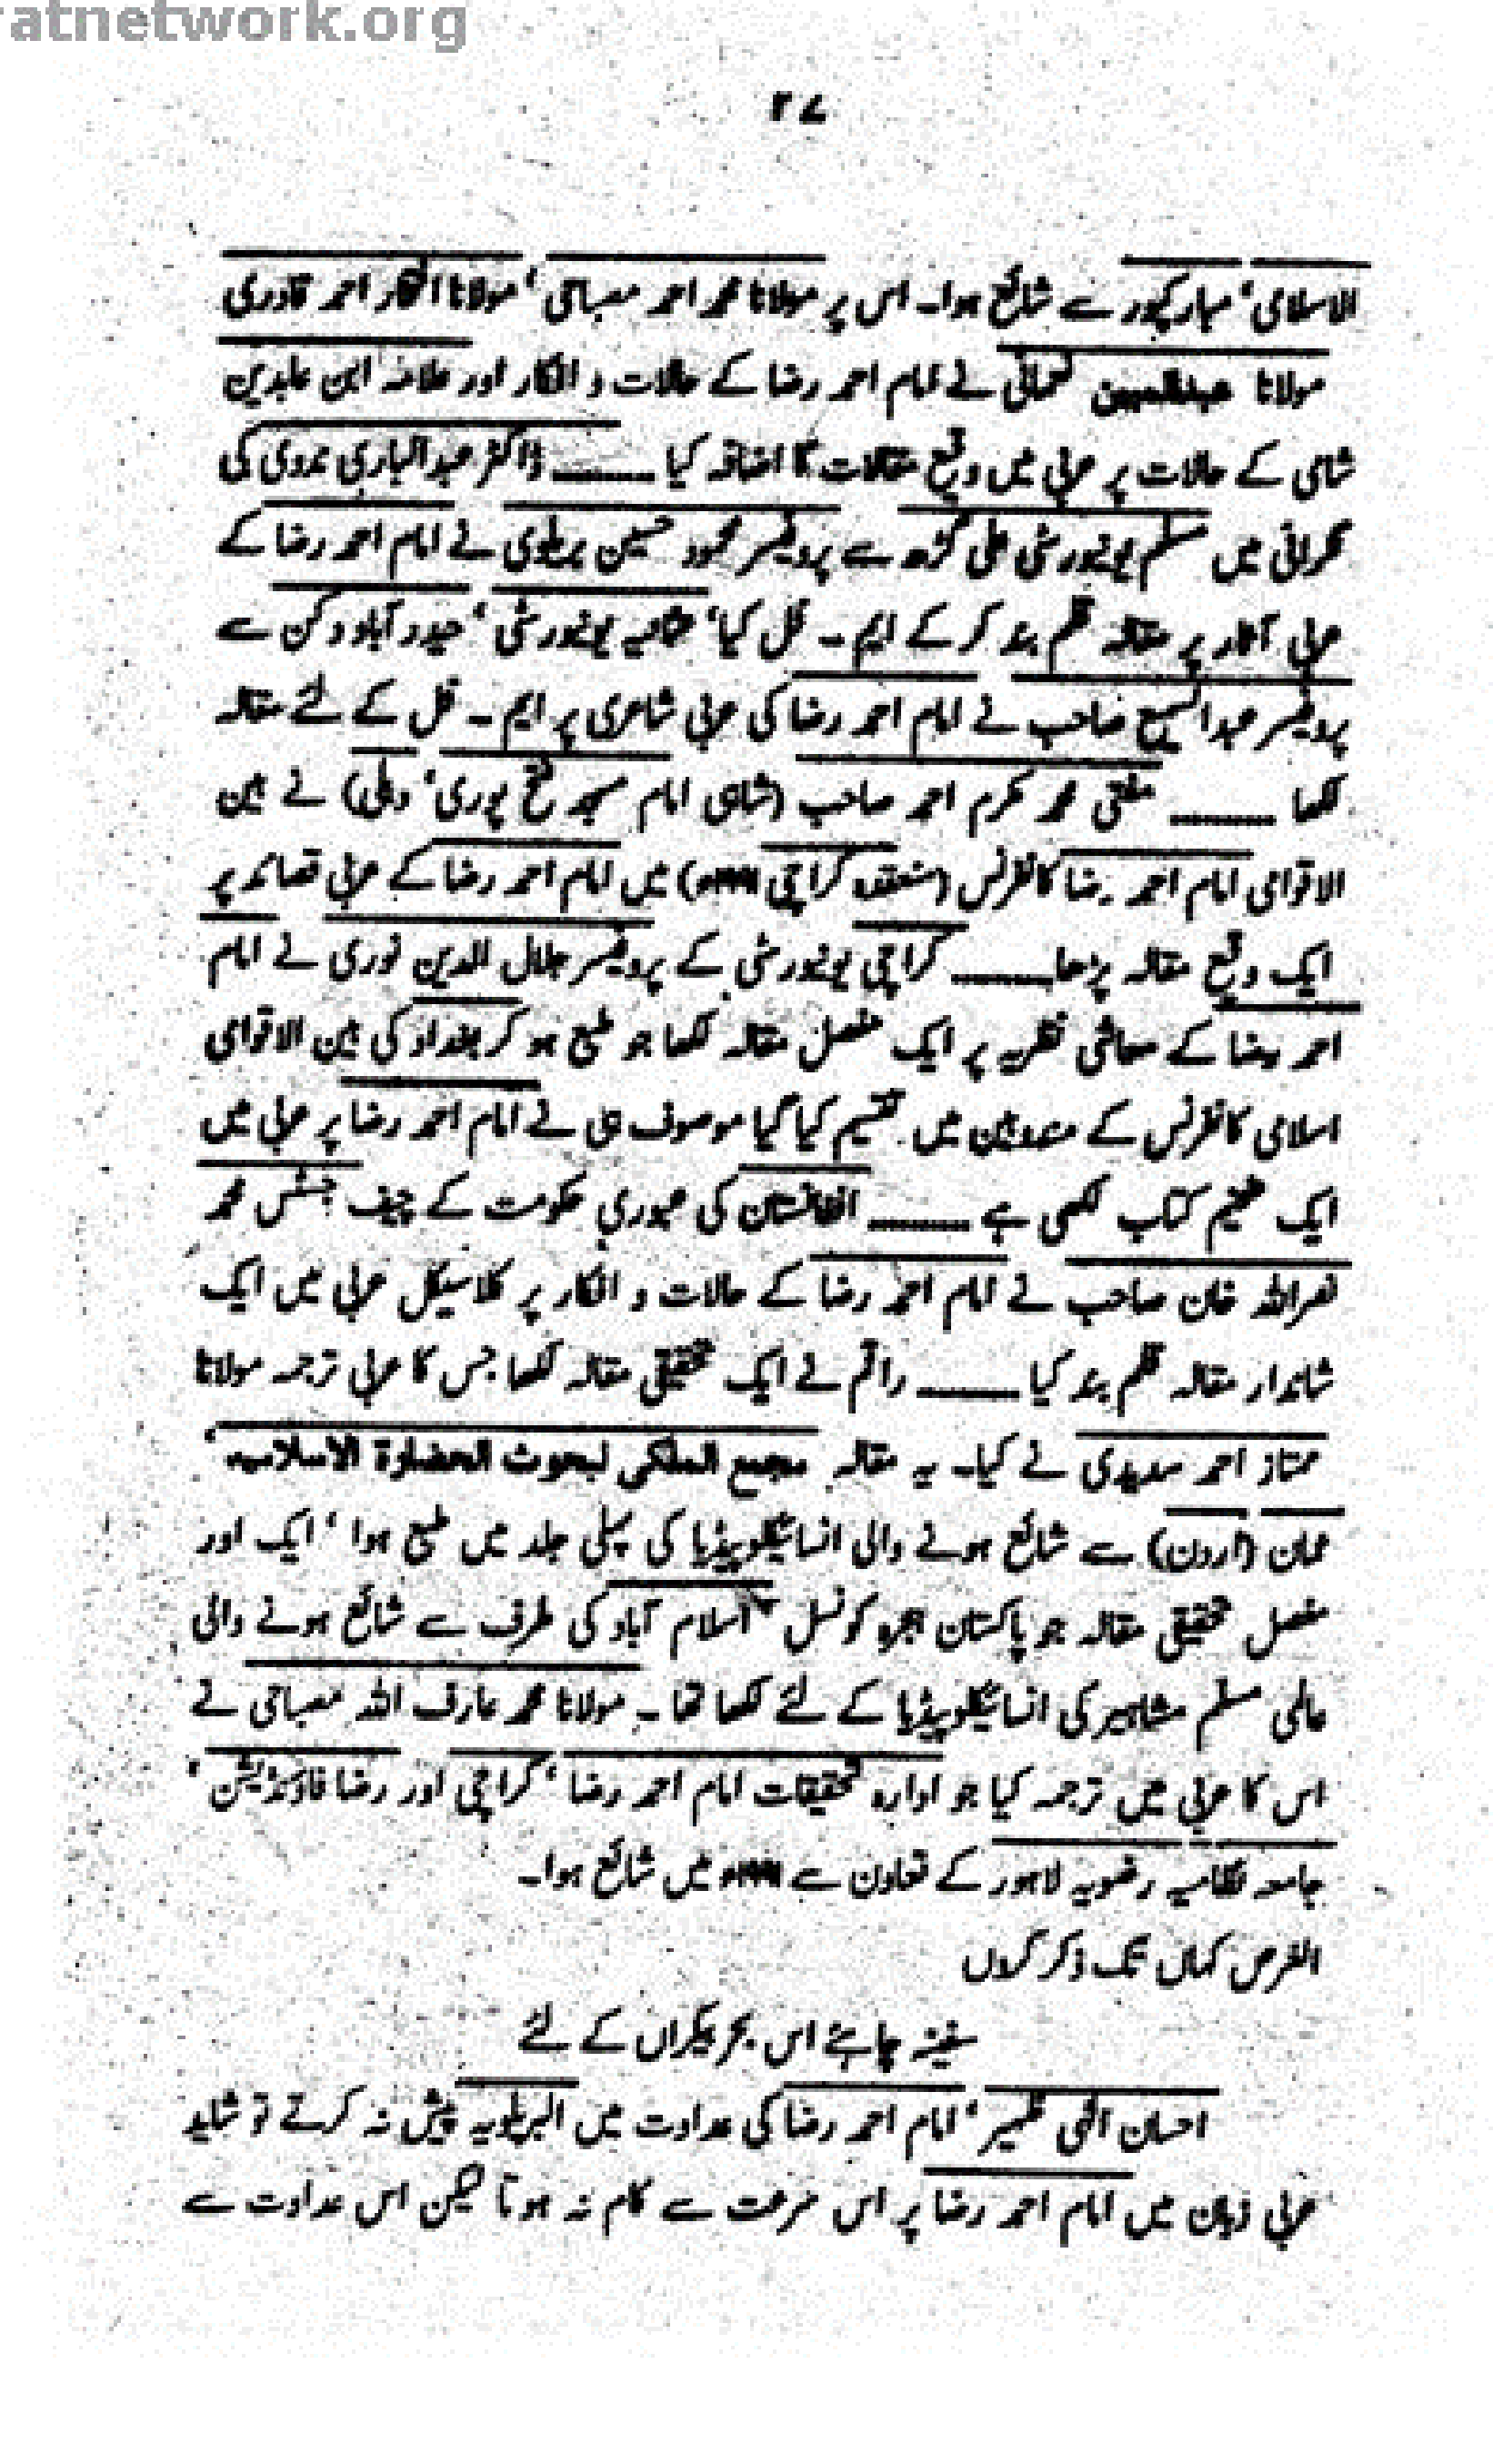 ratnetwork.org
۲۷
الاسلامی‘ مبارکپور سے شائع ہوا۔ اس پر مولانا محمد احمد مصباحی‘ مولانا افتخار احمد قادری
مولانا عبدالمبین نعمانی نے امام احمد رضا کے حالات و افکار اور علامہ ابن عابدین
شامی کے حالات پر عربی میں وقیع مقالات کا اضافہ کیا ــــــ ڈاکٹر عبدالباری ندوی کی
نگرانی میں مسلم یونیورسٹی علی گڑھ سے پروفیسر محمود حسین بریلوی نے امام احمد رضا کے
عربی آثار پر مقالہ قلم بند کر کے ایم ۔ فل کیا‘ عثمانیہ یونیورسٹی‘ حیدر آباد دکن سے
پروفیسر عبدالسمیع صاحب نے امام احمد رضا کی عربی شاعری پر ایم ۔ فل کے لئے مقالہ
لکھا ــــــ مفتی محمد مکرم احمد صاحب (شاہی امام مسجد فتح پوری‘ دہلی) نے بین
الاقوامی امام احمد رضا کانفرنس (منعقدہ کراچی) میں امام احمد رضا کے عربی قصائد پر
ایک وقیع مقالہ پڑھا ــــــ کراچی یونیورسٹی کے پروفیسر جلال الدین نوری نے امام
احمد رضا کے معاشی نظریہ پر ایک مفصل مقالہ لکھا جو طبع ہو کر بغداد کی بین الاقوامی
اسلامی کانفرنس کے مندوبین میں تقسیم کیا گیا موصوف ہی نے امام احمد رضا پر عربی میں
ایک ضخیم کتاب لکھی ہے ــــــ افغانستان کی عبوری حکومت کے چیف جسٹس محمد
نصراللہ خان صاحب نے امام احمد رضا کے حالات و افکار پر کلاسیکل عربی میں ایک
شاندار مقالہ قلم بند کیا ــــــ راقم نے ایک تحقیقی مقالہ لکھا جس کا عربی ترجمہ مولانا
ممتاز احمد سدیدی نے کیا۔ یہ مقالہ مجمع الملکی لبحوث الحضارة الاسلامیہ‘
عمان (اردن) سے شائع ہونے والی انسائیکلوپیڈیا کی پہلی جلد میں طبع ہوا‘ ایک اور
مفصل تحقیقی مقالہ جو پاکستان ہجرہ کونسل‘ اسلام آباد کی طرف سے شائع ہونے والی
عالمی مسلم مشاہیر کی انسائیکلوپیڈیا کے لئے لکھا تھا ۔ مولانا محمد عارف اللہ مصباحی نے
اس کا عربی میں ترجمہ کیا جو ادارہ تحقیقات امام احمد رضا‘ کراچی اور رضا فاؤنڈیشن‘
جامعہ نظامیہ رضویہ لاہور کے تعاون سے میں شائع ہوا۔
الغرض کہاں تک ذکر کروں
سفینہ چاہئے اس بحر بیکراں کے لئے
احسان الٰہی ظہیر‘ امام احمد رضا کی عداوت میں البریلویہ پیش نہ کرتے تو شاید
عربی زبان میں امام احمد رضا پر اس سرعت سے کام نہ ہوتا لیکن اس عداوت سے